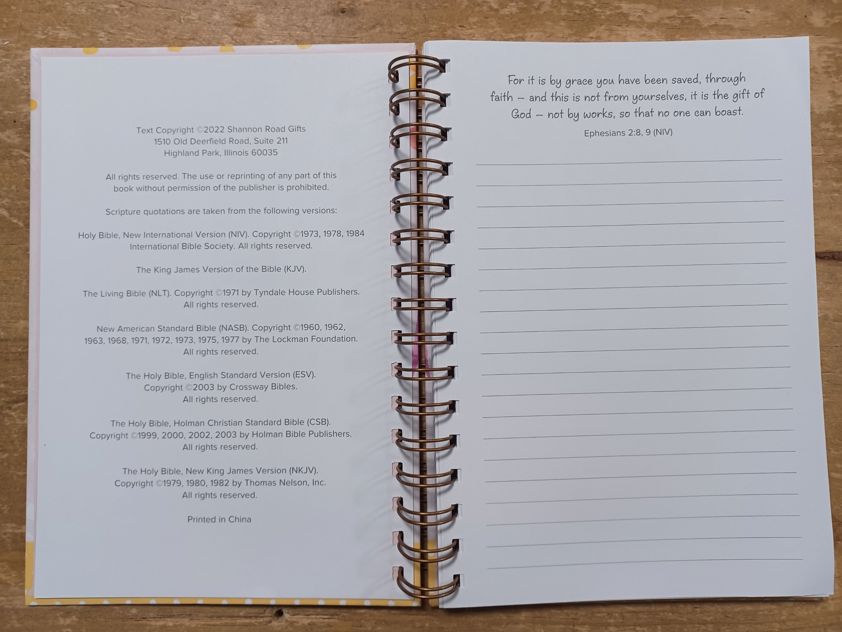 Text Copyright ©2022 Shannon Road Gifts
1510 Old Deerfield Road, Suite 211
Highland Park, Illinois 60035
All rights reserved. The use or reprinting of any part of this
book without permission of the publisher is prohibited.
Scripture quotations are taken from the following versions:
Holy Bible, New International Version (NIV). Copyright ©1973, 1978, 1984
International Bible Society. All rights reserved.
The King James Version of the Bible (KJV).
The Living Bible (NLT). Copyright ©1971 by Tyndale House Publishers.
All rights reserved.
New American Standard Bible (NASB). Copyright ©1960, 1962,
1963, 1968, 1971, 1972, 1973, 1975, 1977 by The Lockman Foundation.
All rights reserved.
The Holy Bible, English Standard Version (ESV).
Copyright ©2003 by Crossway Bibles.
All rights reserved.
The Holy Bible, Holman Christian Standard Bible (CSB).
Copyright ©1999, 2000, 2002, 2003 by Holman Bible Publishers.
All rights reserved.
The Holy Bible, New King James Version (NKJV).
Copyright ©1979, 1980, 1982 by Thomas Nelson, Inc.
All rights reserved.
Printed in China
For it is by grace you have been saved, through
faith – and this is not from yourselves, it is the gift of
God – not by works, so that no one can boast.
Ephesians 2:8, 9 (NIV)